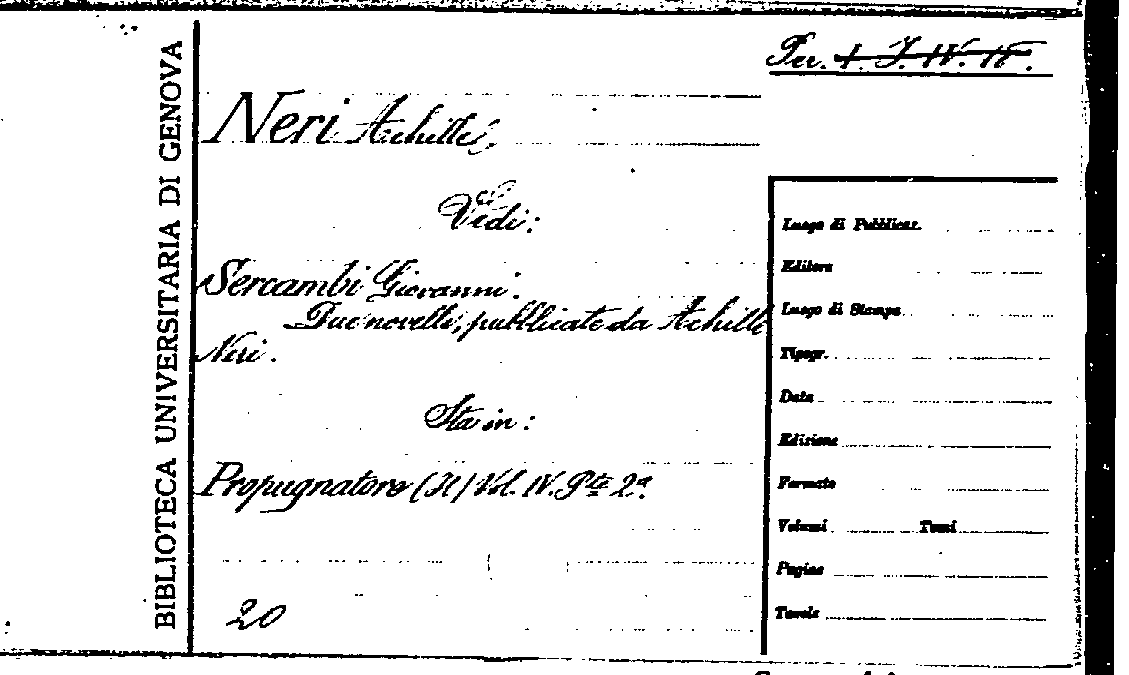 BIBLIOTECA UNIVERSITARIA DI GENOVA
Per. I. J. IV. II.
Neri Achille,
Vedi:
Sercambi Giovanni.
Due novelle, pubblicate da Achille
Neri.
Sta in:
Propugnatore (Il) Vol. IV. Pte 2a.
20
Luogo di Pubblicaz.
Editore
Luogo di Stampa
Tipogr.
Data
Edizione
Formato
Volumi Tomi
Pagine
Tavole